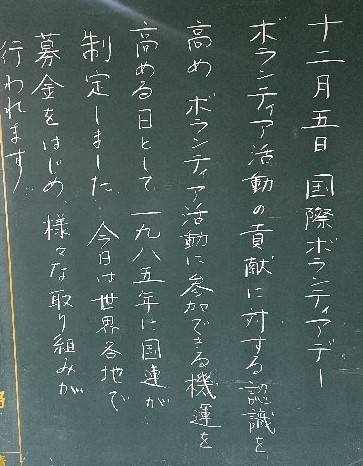 十二月五日 国際ボランティアデー
ボランティア活動の貢献に対する認識を
高め ボランティア活動に参加できる機運を
高める日として 一九八五年に国連が
制定しました 今日は世界各地で
募金をはじめ 様々な取り組みが
行われます